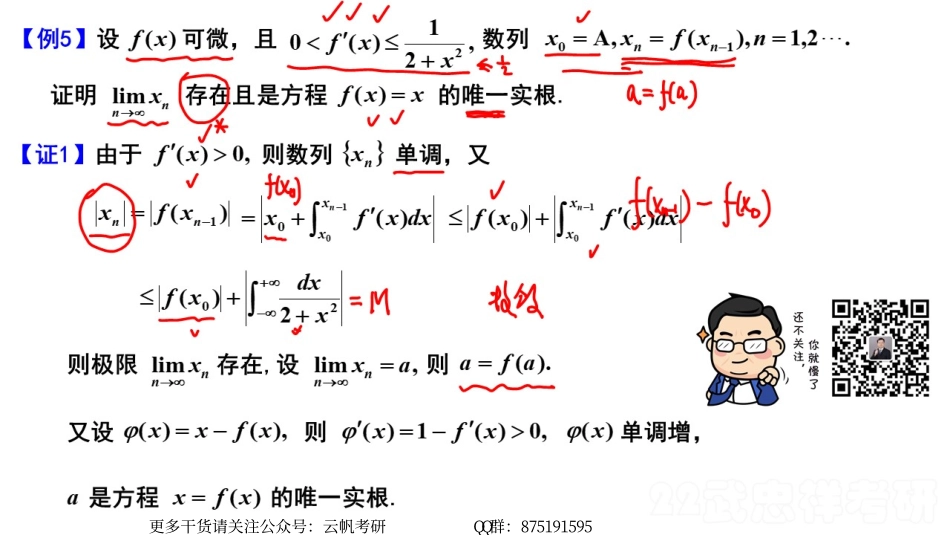 【例5】设 f(x) 可微，且 0 < f′(x) ≤ 1/(2 + x²), 数列 x₀ = A, xₙ = f(xₙ₋₁), n = 1,2⋯.
← ½
证明 lim_{n→∞} xₙ 存在且是方程 f(x) = x 的唯一实根.
a = f(a)
【证1】由于 f′(x) > 0, 则数列 {xₙ} 单调，又
f(x₀) f(xₙ₋₁) − f(x₀)
|xₙ| = |f(xₙ₋₁)| = |x₀ + ∫_{x₀}^{xₙ₋₁} f′(x)dx| ≤ |f(x₀)| + |∫_{x₀}^{xₙ₋₁} f′(x)dx|
≤ |f(x₀)| + |∫_{−∞}^{+∞} dx/(2 + x²)| = M
还不关注，
你就慢了
则极限 lim_{n→∞} xₙ 存在, 设 lim_{n→∞} xₙ = a, 则 a = f(a).
又设 φ(x) = x − f(x), 则 φ′(x) = 1 − f′(x) > 0, φ(x) 单调增，
a 是方程 x = f(x) 的唯一实根.
22武忠祥考研
更多干货请关注公众号：云帆考研 QQ群：875191595